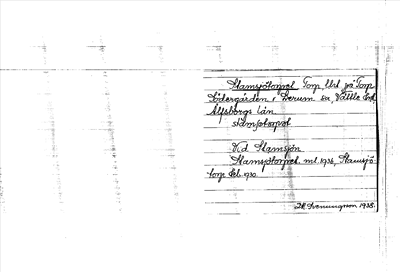 Stamsjötorpet Torp, lht på Torp
Södergården i Lerum sn, Vättle hd
Älfsborgs län
stamsjötorpət
Vid Stamsjön
Stamsjötorpet ml. 1936, Stamsjö-
torp Eb. 930
Svenungsson 1938.